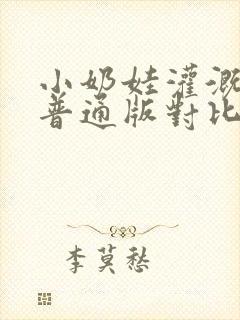 小奶娃灌溉
普通版對比
李莫愁